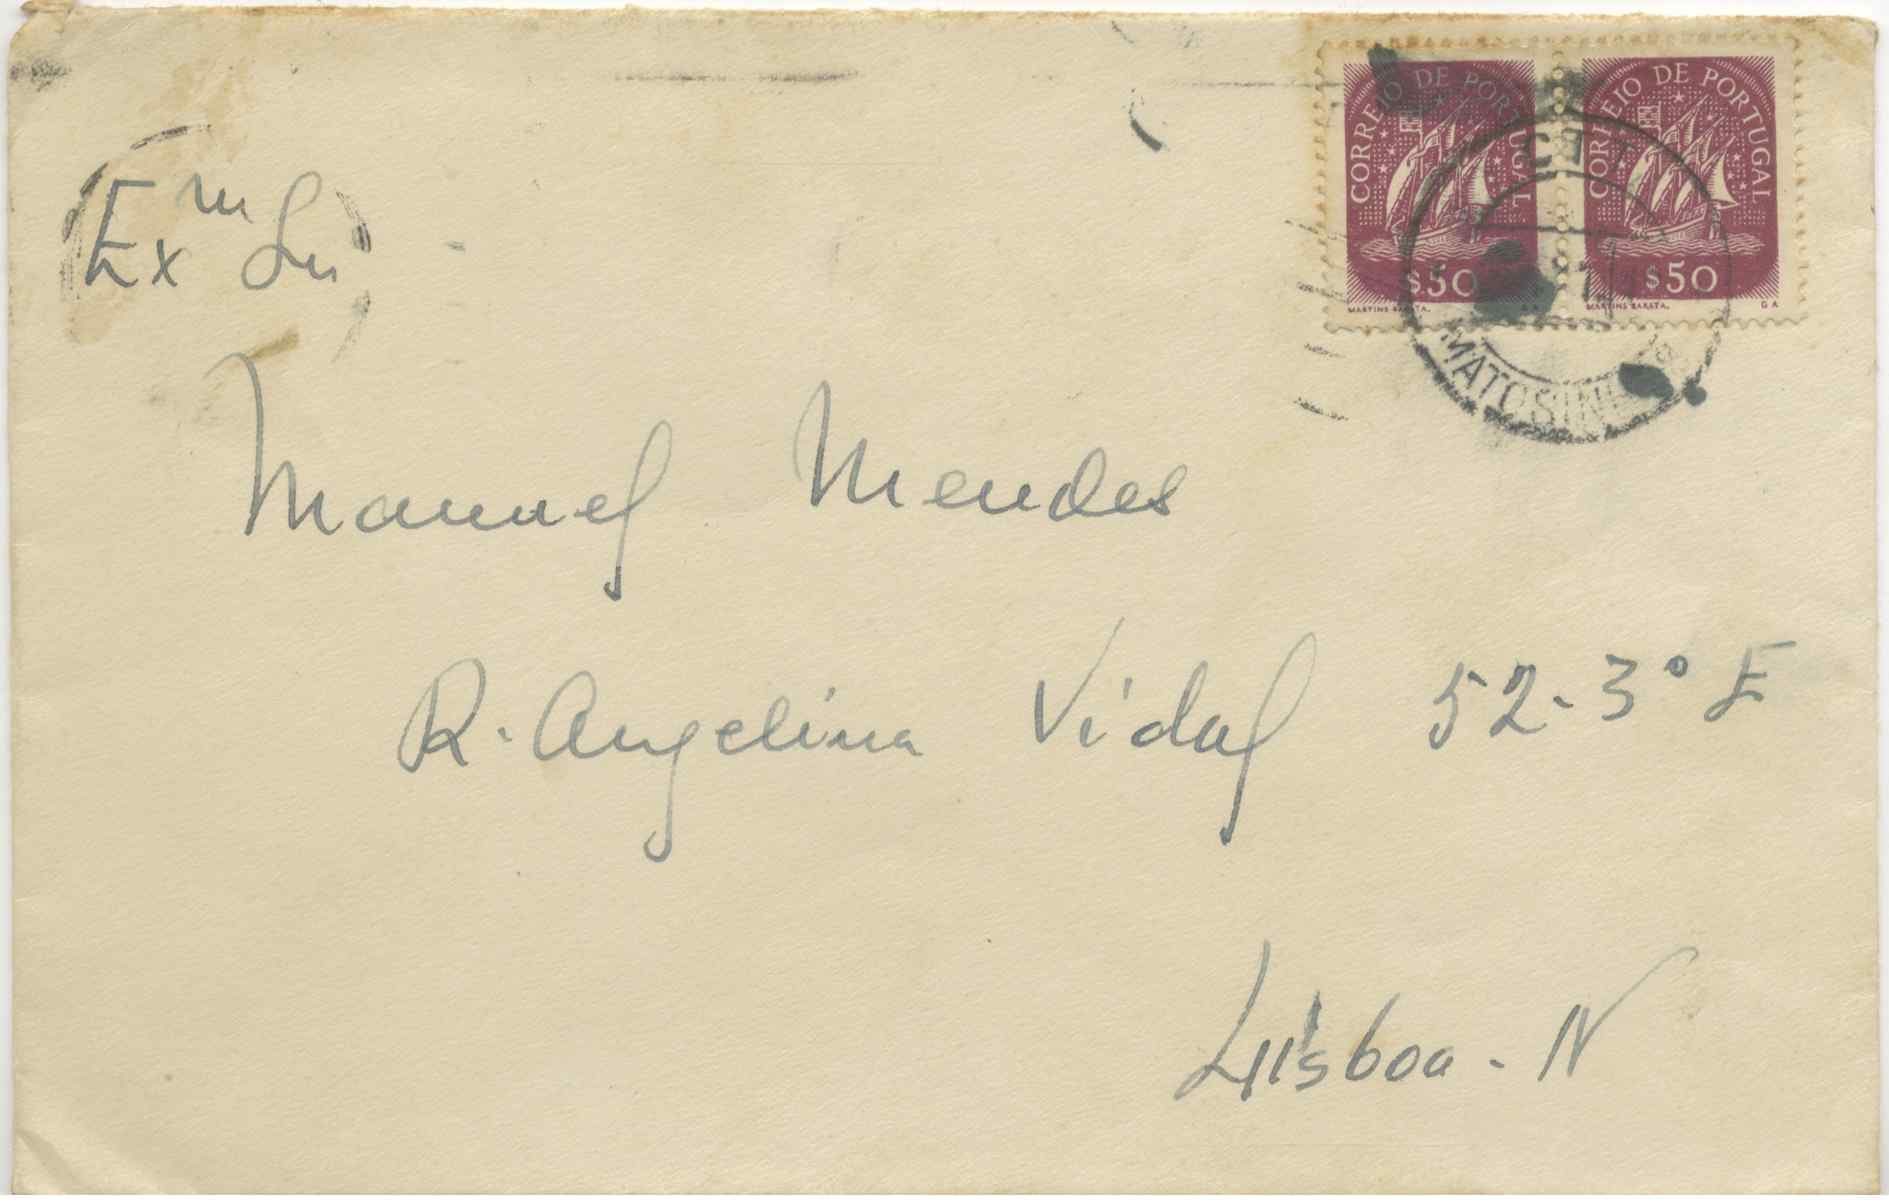 CORREIO DE PORTUGAL
$50
MARTINS BARATA.
CORREIO DE PORTUGAL
$50
MARTINS BARATA. GA
MATOSINHOS
Exm Sr
Manuel Mendes
R. Angelina Vidal 52-3º E
Lisboa-N